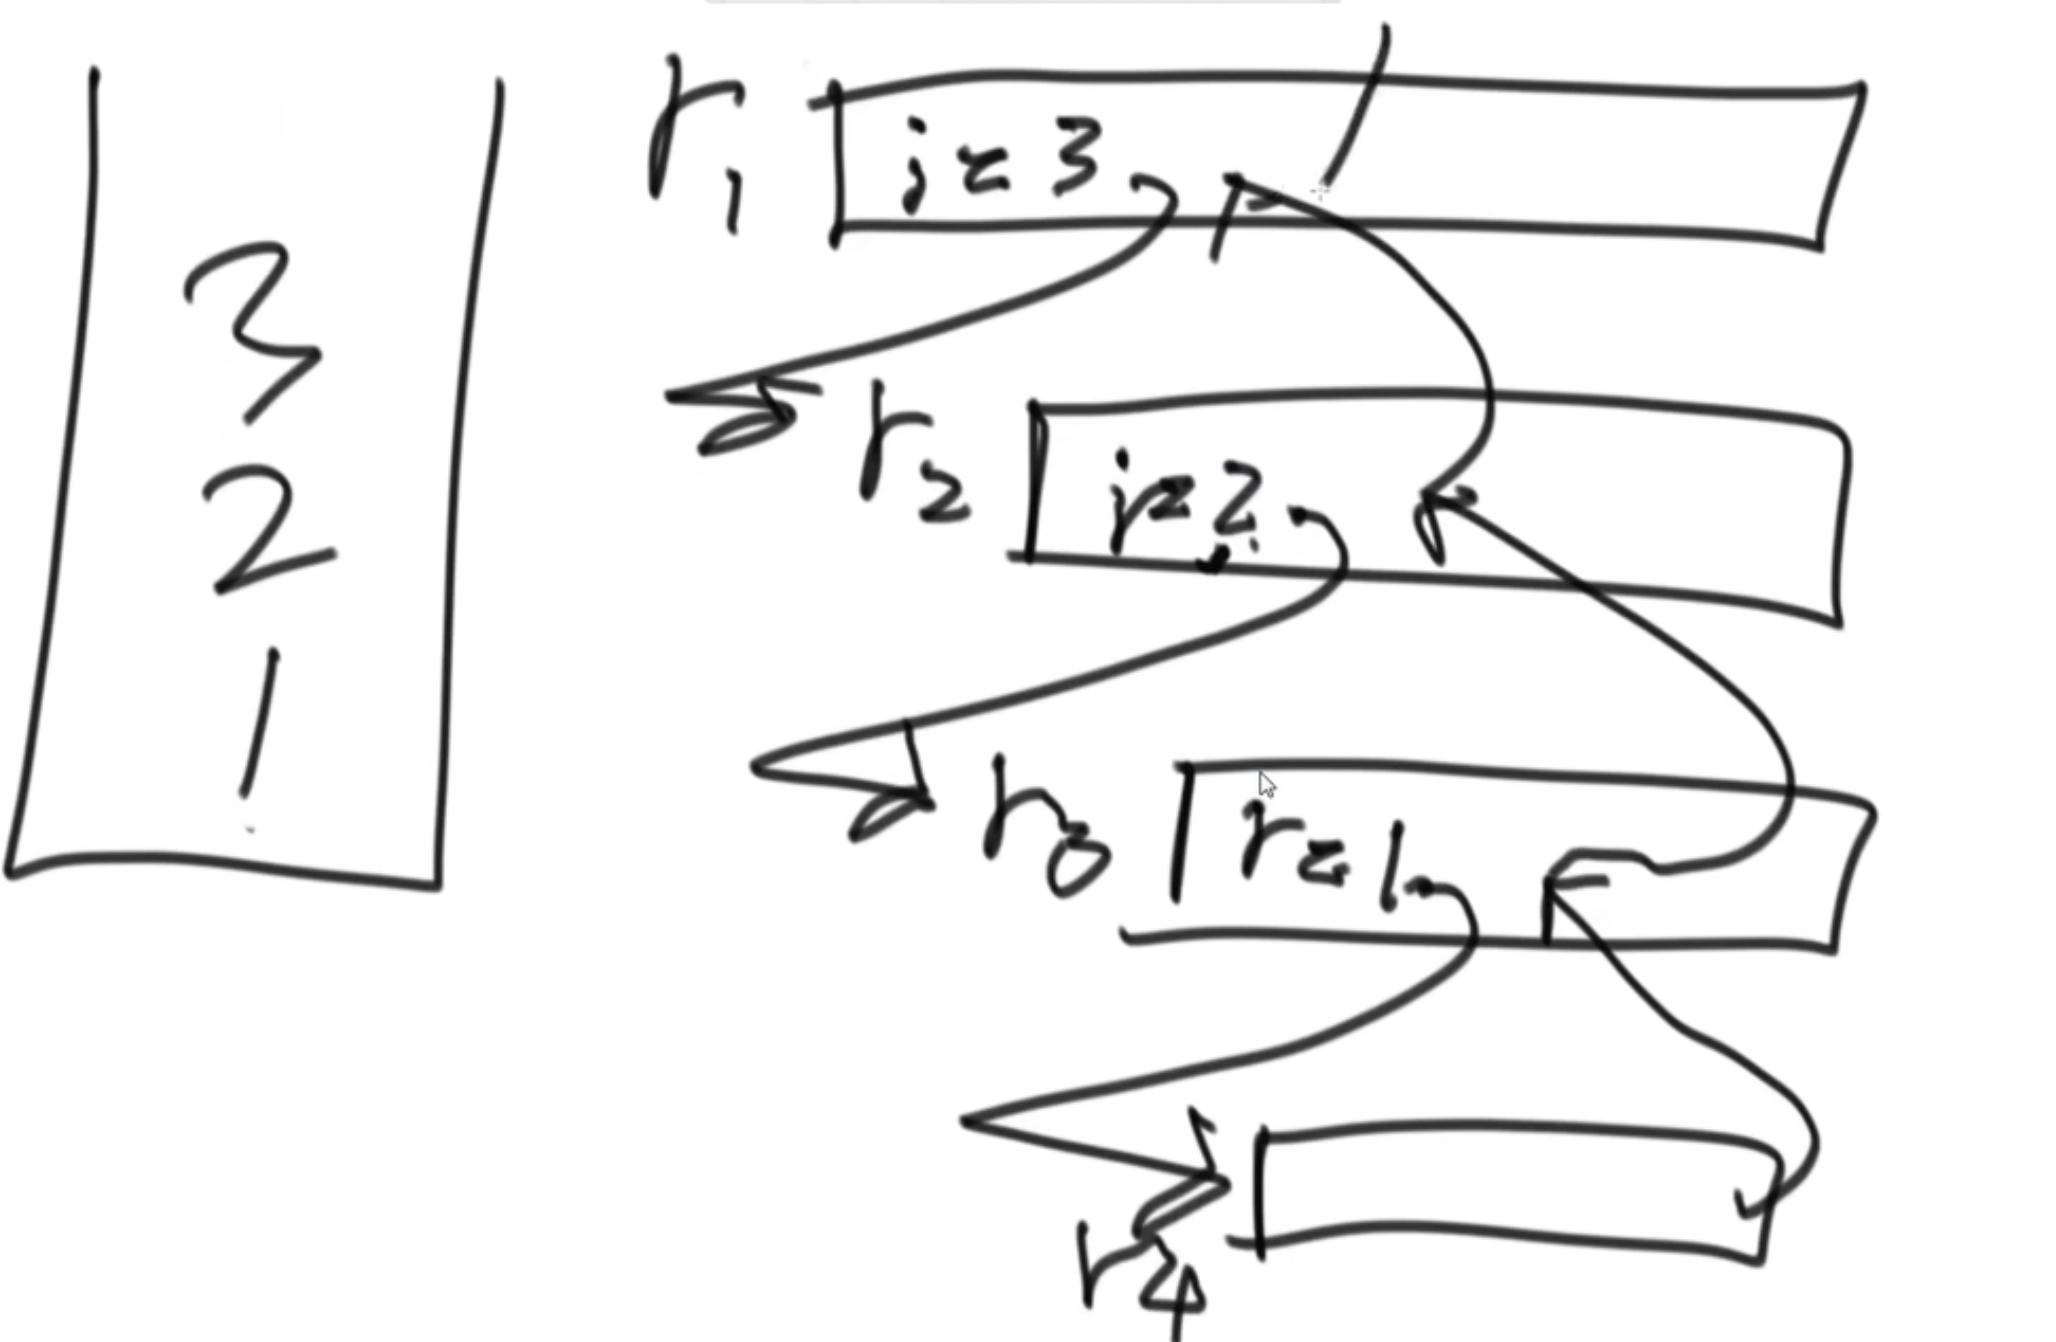 3
2
1
r1 i=3
r2 i=2
r3 r=1
r4